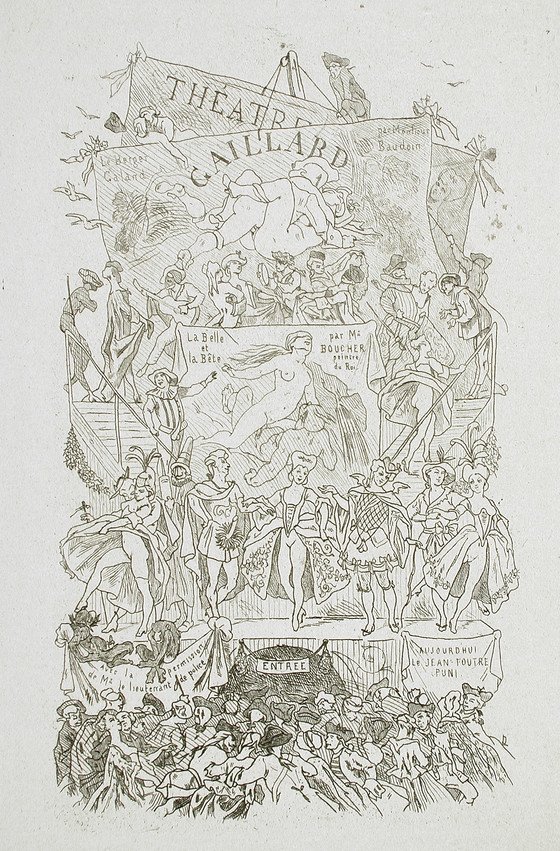 THÉATRE
GAILLARD
Le berger
Galand
par Monsieur
Baudoin
La Belle
et
la Bête
par Mr
BOUCHER
peintre
du Roi.
avec la permission
de Mr le lieutenant de police
ENTREE
AUJOURDHUI
Le JEAN FOUTRE
PUNI